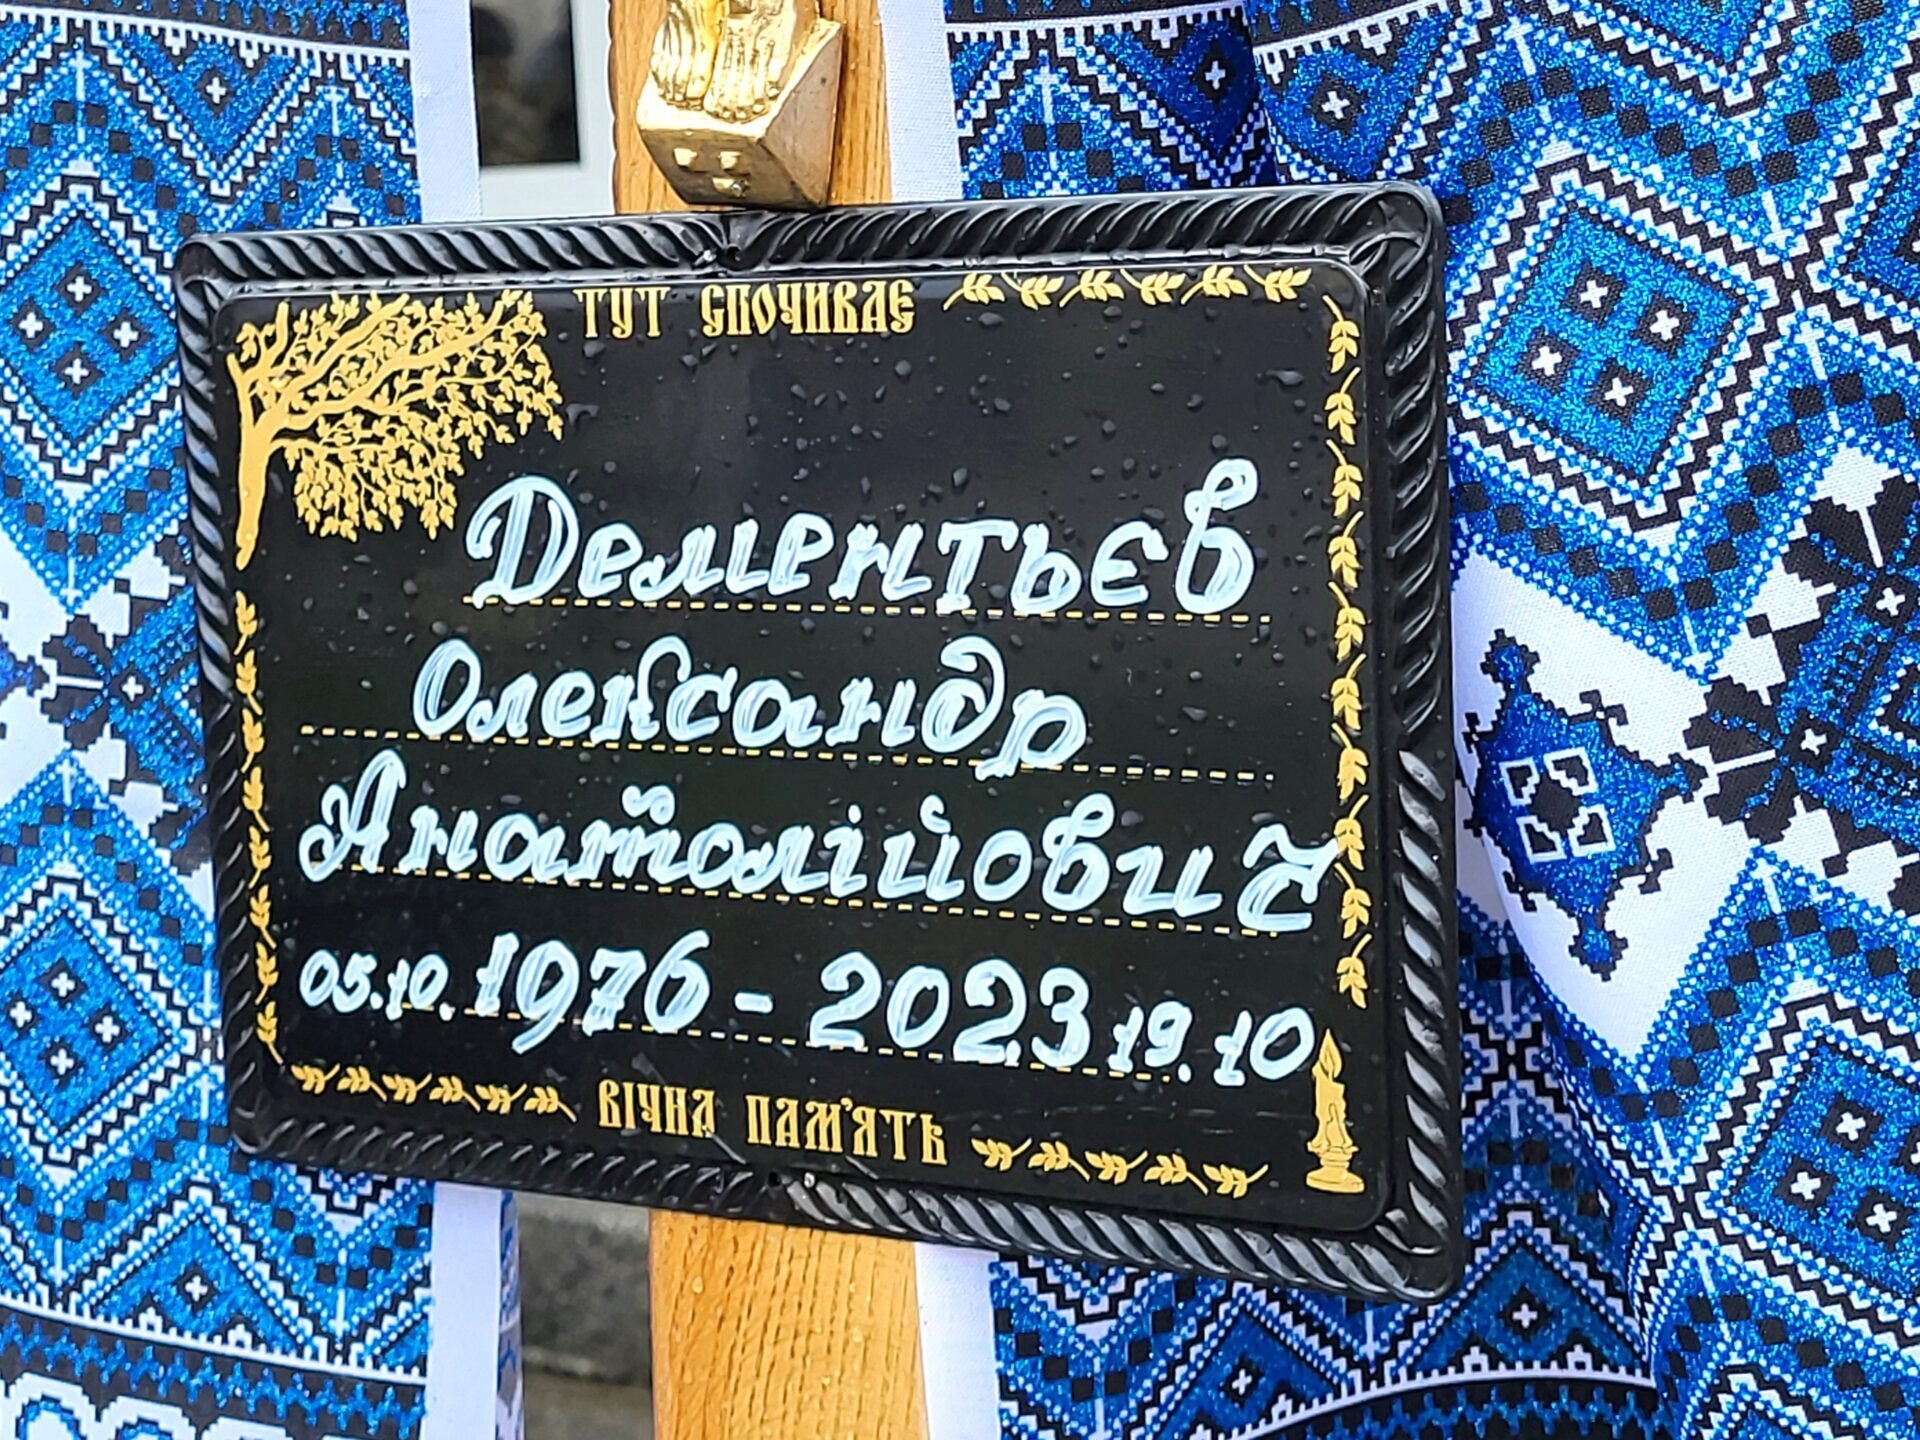 ТУТ СПОЧИВАЄ
Дементьєв
Олександр
Анатолійович
05.10.1976 - 2023 19.10
ВІЧНА ПАМ'ЯТЬ